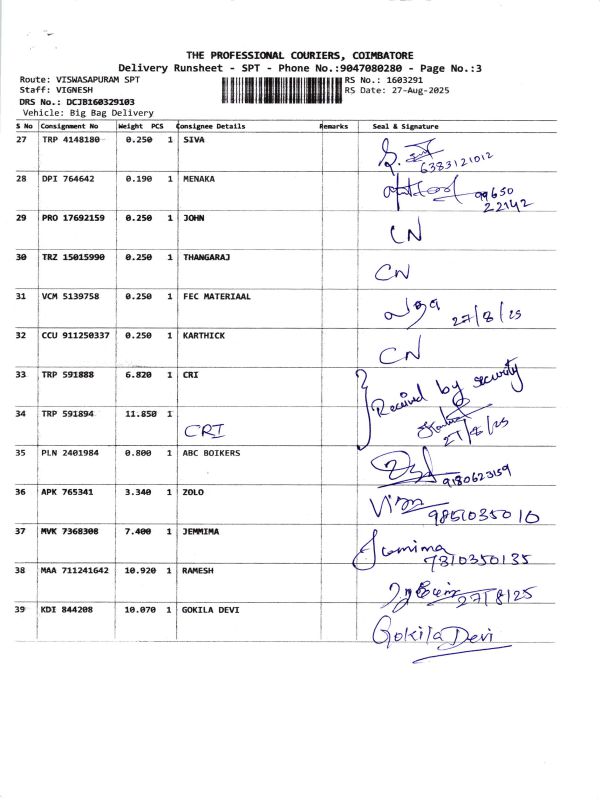 THE PROFESSIONAL COURIERS, COIMBATORE
Delivery Runsheet - SPT - Phone No.:9047080280 - Page No.:3
Route: VISWASAPURAM SPT RS No.: 1603291
Staff: VIGNESH RS Date: 27-Aug-2025
DRS No.: DCJB160329103
Vehicle: Big Bag Delivery
S No Consignment No Weight PCS Consignee Details Remarks Seal & Signature
27 TRP 4148180 0.250 1 SIVA
6383121012
28 DPI 764642 0.190 1 MENAKA
99650
22142
29 PRO 17692159 0.250 1 JOHN
CN
30 TRZ 15015990 0.250 1 THANGARAJ
CN
31 VCM 5139758 0.250 1 FEC MATERIAAL
27/8/25
32 CCU 911250337 0.250 1 KARTHICK
CN
33 TRP 591888 6.820 1 CRI
Received by security
34 TRP 591894 11.850 1 CRI
27/8/25
35 PLN 2401984 0.800 1 ABC BOIKERS
9180623159
36 APK 765341 3.340 1 ZOLO
9851035010
37 MVK 7368308 7.400 1 JEMMIMA
Jemima
7310350135
38 MAA 711241642 10.920 1 RAMESH
27/8/25
39 KDI 844208 10.070 1 GOKILA DEVI
Gokila Devi